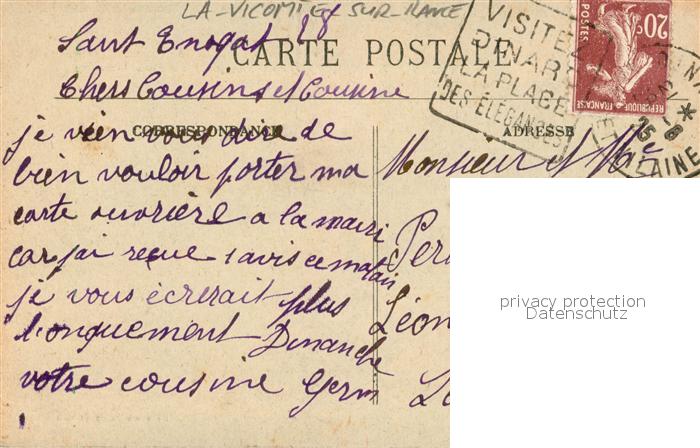 LA-VICOMTE SUR-RANCE
Saint Enogat 28
CARTE POSTALE
Chers Cousins et Cousine
CORRESPONDANCE
ADRESSE
je vien vous dire de
bien vouloir porter ma
carte ouvrière a la mairi
car j'ai reçue 1 avis ce matin
je vous écrerait plus
longuement Dimanche
votre cousine Germ
Monsieur et Me
Per
Léon
VISITEZ
DINARD
LA PLAGE
DES ÉLÉGANCES
20c
POSTES
REPUBLIQUE FRANÇAISE
DINA
25
LAINE
privacy protection
Datenschutz